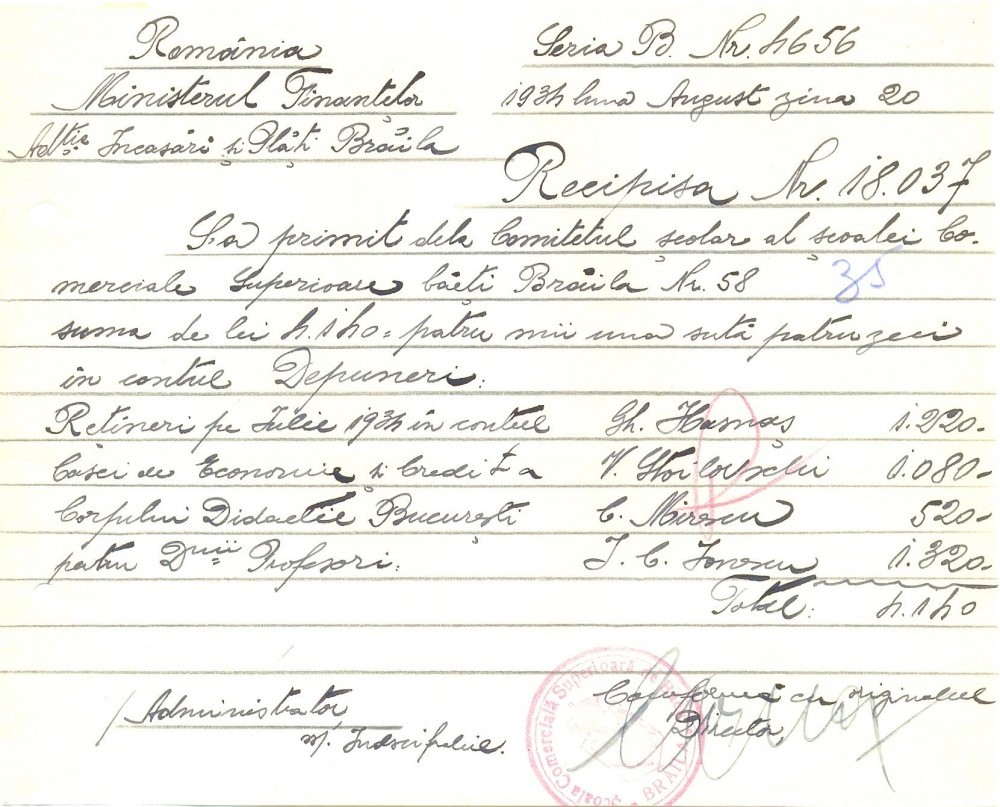 România
Seria B. Nr. 4656
Ministerul Finanțelor
1934 luna August ziua 20
Adția Încasări și Plăți Brăila
Recipisa Nr. 18.037
S'a primit dela Comitetul școlar al școalei Co-
merciale Superioare băeți Brăila Nr. 58
35
suma de lei 4.140 = patru mii una sută patruzeci
în contul Depuneri:
Rețineri pe Iulie 1934 în contul Gh. Hasnaș 1.220-
Casei de Economie și Credit a V. Stoilovschi 1.080-
Corpului Didactic București C. Mirescu 520-
patru Dnii Profesori: I. C. Ionescu 1.320-
Total: 4.140
Școala Comercială Superioară de BRĂILA
Conformă cu originalul
Administrator, Director,